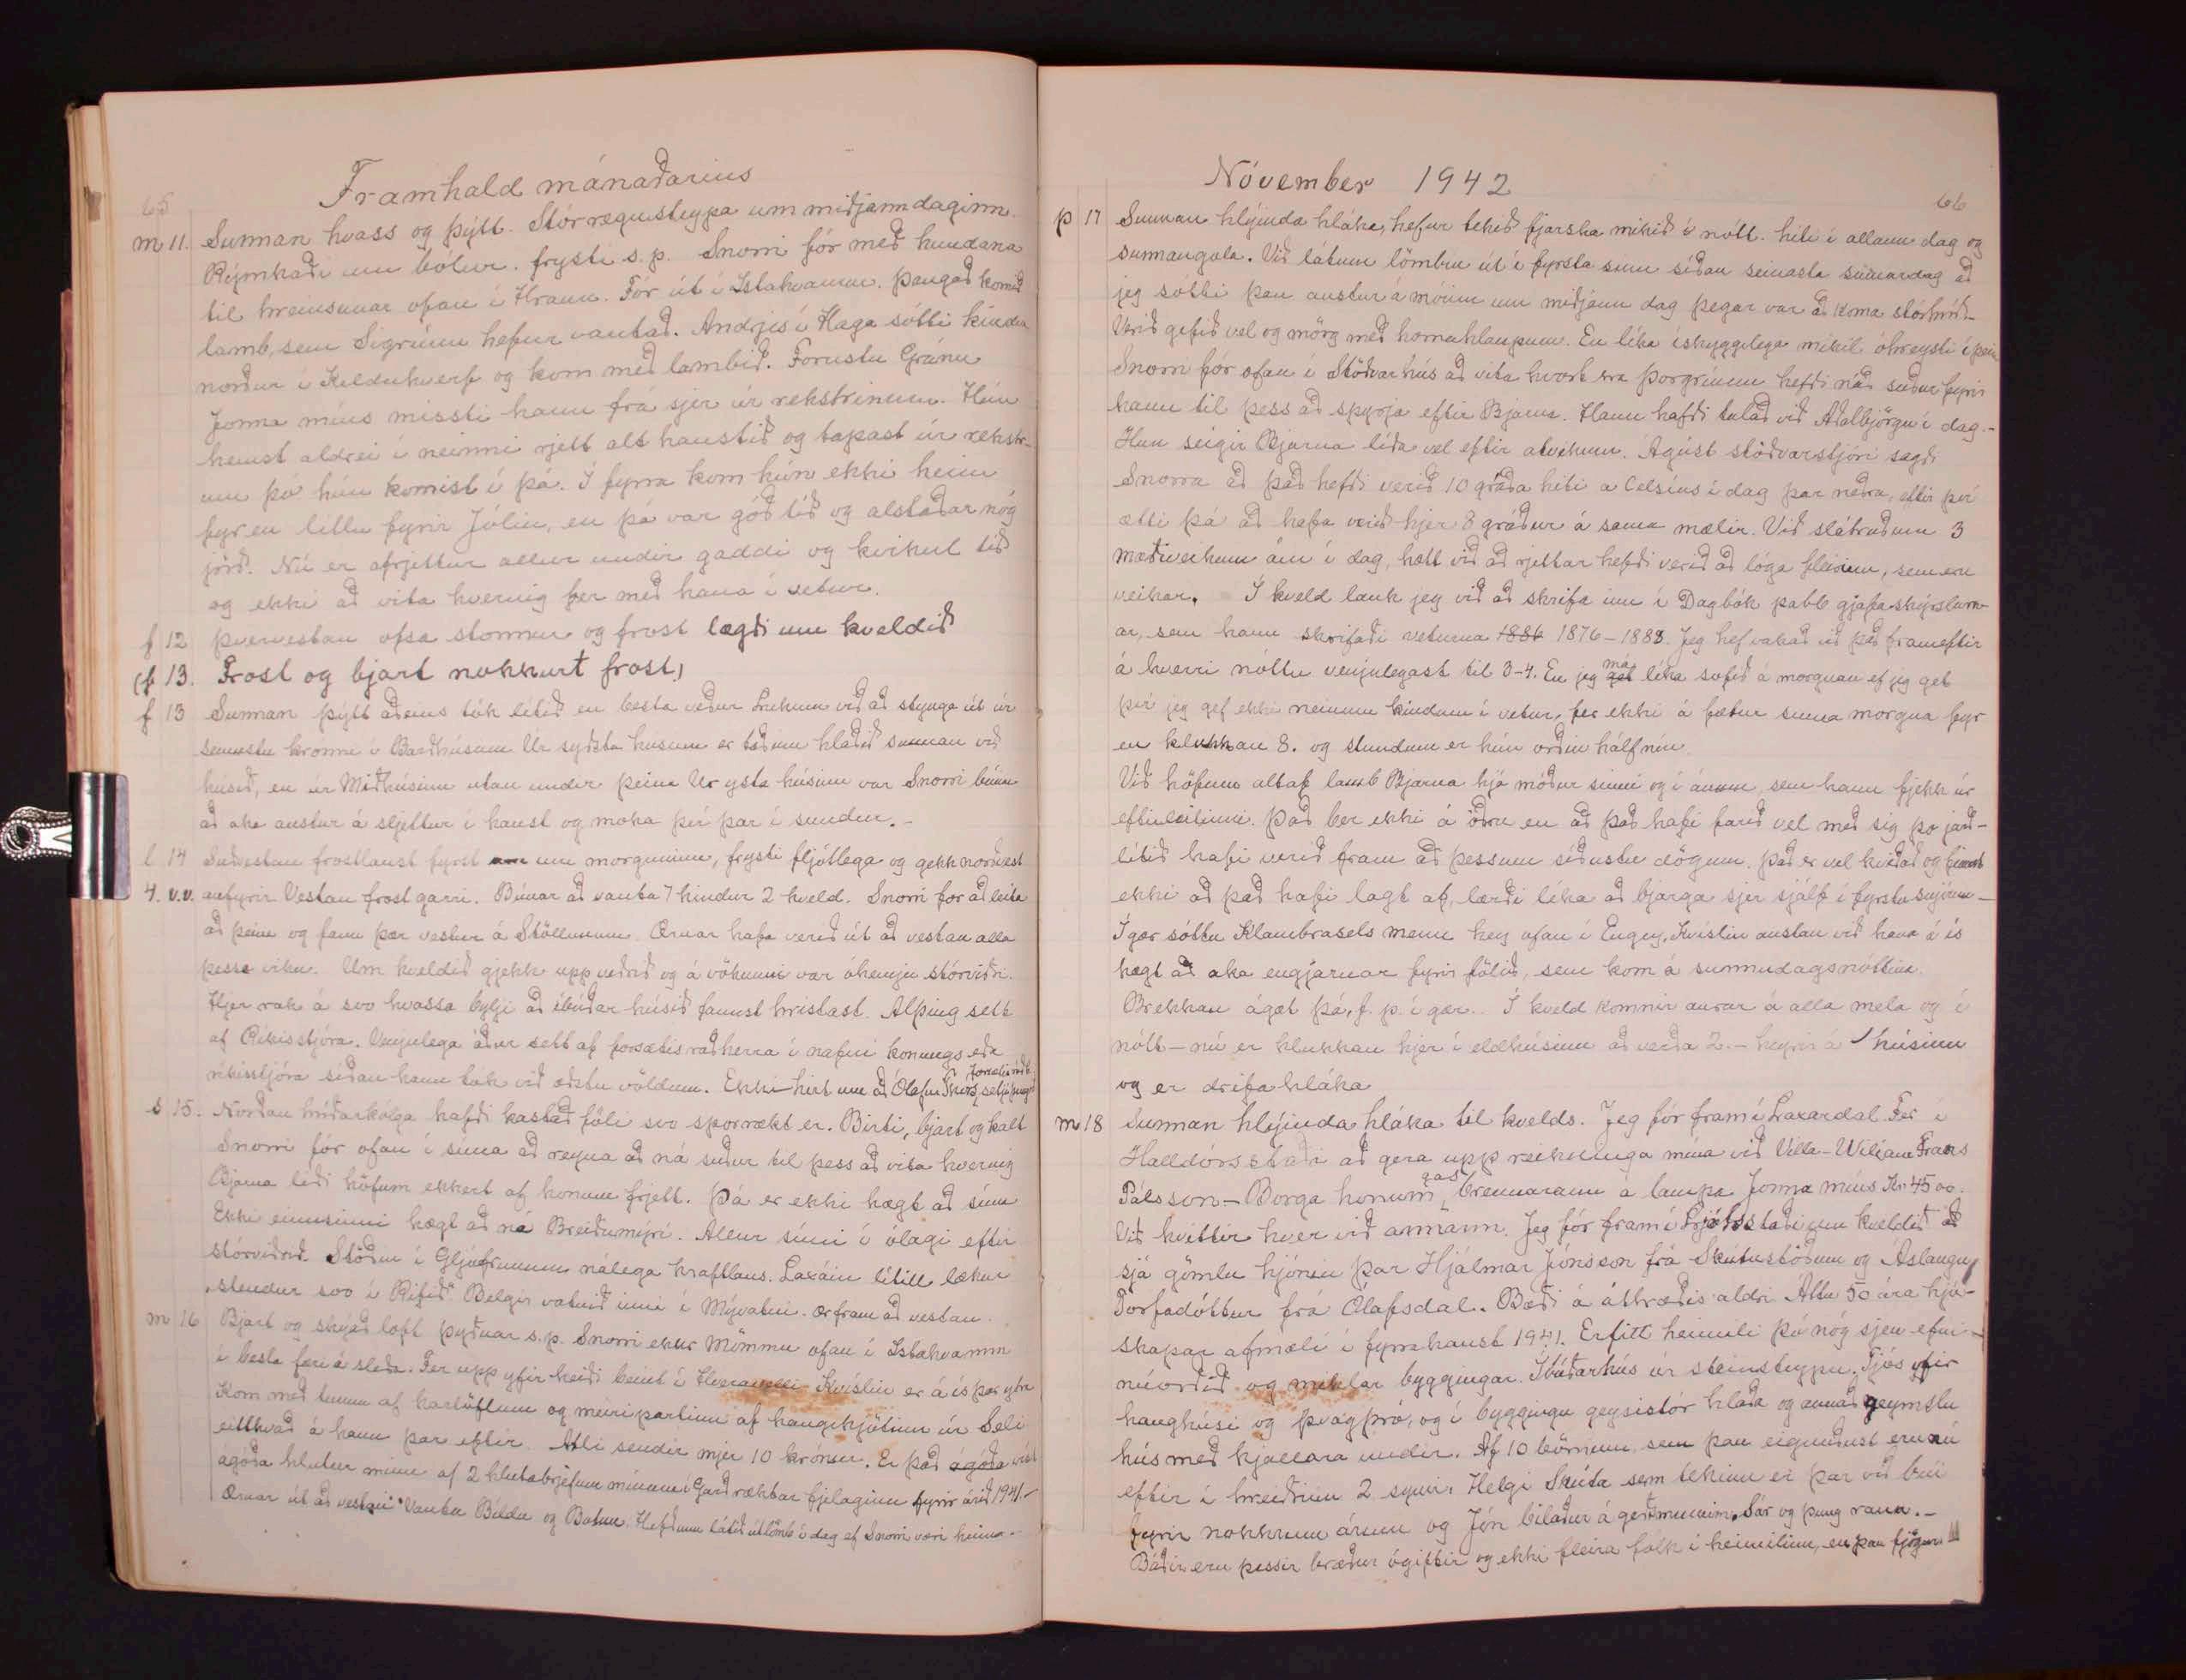 Framhald mánaðarins
65
m 11. Sunnan hvass og þýtt. Stórregnsteypa um miðjann daginn.
Rýmkaði um bólur. frysti s.p. Snorri fór með hundana
til hreinsunar ofan í Hraun. Fór út í Ístahvamm. þangað komið
lamb, sem Sigrúnu hefur vantað. Andrjes í Haga sótti kindur
norður í Kelduhverfi og kom með lambið. Forustu Gránu
Jonna míns missti hann frá sjer úr rekstrinum. Hún
kemst aldrei í neinni rjett alt haustið og tapast úr rekstr-
um þó hún komist í þá. Í fyrra kom hún ekki heim
fyr en litlu fyrir Jólin, en þá var góð tíð og alstaðar nóg
jörð. Nú er afrjettur allur undir gaddi og kvikul tíð
og ekki að vita hvernig fer með hana í vetur.
f 12 Þvervestan ofsa stormur og frost lægði um kveldið
(f 13. Frost og bjart nokkurt frost)
f 13 Sunnan þýtt aðeins tók lítið en besta veður Lukum við að stynga út úr
seinustu krónni í Barðhúsum Úr syðsta húsinu er taðinu hlaðið sunnan við
húsið, en úr Miðhúsinu utan undir þeim Úr ysta húsinu var Snorri búinn
að aka austur á sljettur í haust og moka því þar í sundur.-
l 14 Suðvestan frostlaust fyrst um morguninn, frysti fljótlega og gekk norðvest
4. v.v. anfyrir Vestan frost garri. Búnar að vanta 7 kindur 2 kveld. Snorri fór að leita
að þeim og fann þær vestur á Stöllunum. Ærnar hafa verið út að vestan alla
þessa viku. Um kveldið gjekk upp veðrið og á vökunni var óhemju stórviðri.
Hjer rak á svo hvassa bylji að íbúðar húsið fannst hristast. Alþing sett
af Ríkisstjóra. Venjulega áður sett af forsætisráðherra í nafni konungs eða
ríkisstjóra síðan hann tók við æðstu völdum. Ekki hirt um að Ólafur Thors setji þingið
s 15. Norðan hríðarkólga hafði kastað föli svo sporrækt er. Birti, bjart og kalt
Snorri fór ofan í síma að reyna að ná suður til þess að vita hvernig
Bjarna líði höfum ekkert af honum frjett. Þá er ekki hægt að síma
Ekki einusinni hægt að ná Breiðumýri. Allur sími í ólagi eftir
stórviðrið. Stöðin í Gljúfrunum nálega kraftlaus. Laxáin lítill lækur
„stendur svo í Rifið“ Belgir vatnið inni í Mývatni. ær fram að vestan.
m 16 Bjart og skýað loft þyðnar s.p. Snorri ekur Mömmu ofan í Ístahvamm
í besta færi á sleða. Fer upp yfir heiði beint í Hveravelli Kvíslin er á ís þar ytra
Kom með tunnu af kartöflum og meiri partinn af hangikjötinu úr Seli
eitthvað á hann þar eftir. Atli sendir mjer 10 krónur. Er það ágóða
ágóða hlutur minn af 2 hlutabrjefum mínum í Garðræktar fjelaginu fyrir árið 1941.-
Ærnar út að vestan. Vantar Bíldu og Botnu. Hefðum látið út lömb í dag ef Snorri væri heima.-
Nóvember 1942
66
þ 17 Sunnan hlýinda hláka, hefur tekið fjarska mikið í nótt. hiti í allann dag og
sunnangola. Við látum lömbin út í fyrsta sinn síðan seinasta sumardag að
jeg sótti þau austur á móinn um miðjann dag þegar var að koma stórhríð-
Verið gefið vel og mörg með hornahlaupum. En líka ískyggilega mikil óhreysti í þeim
Snorri fór ofan í Stöðvarhús að vita hvort sra Þorgrímur hefði náð suður fyrir
hann til þess að spyrja eftir Bjarna. Hann hafði talað við Aðalbjörgu í dag.-
Hun seigir Bjarna líða vel eftir atvikum. Ágúst stöðvarstjóri sagði
Snorra að það hefði verið 10 gráða hiti a Celsíus í dag þar neðra, eftir því
ætti þá að hafa verið hjer 8 gráður á sama mælir. Við slátruðum 3
mæðiveikum ám í dag, hætt við að rjettar hefði verið að lóga fleirum, sem eru
veikar. Í kveld lauk jeg við að skrifa inn í Dagbók pabb gjafaskýrslurn-
ar, sem hann skrifaði veturna 1886 1876-1888. Jeg hef vakað við það frameftir
á hverri nóttu venjulegast til 3-4. En jeg má get líka sofið á morgnan ef jeg get
því jeg gef ekki neinum kindum í vetur, fer ekki á fætur suma morgna fyr
en klukkan 8. og stundum er hún orðin hálf níu.
Við höfum altaf lamb Bjarna hjá móður sinni og í ánum, sem hann fjekk úr
eftirleitinni. Það ber ekki á öðru en að það hafi farið vel með sig þo jarð-
lítið hafi verið fram að þessum síðustu dögum. það er vel kviðað og finnst
ekki að það hafi lagt af, lærði líka að bjarga sjer sjálf í fyrstu snjónum-
Ígær sóttu Klambrasels menn hey ofan í Engey. Kvíslin austan við hana á ís
hægt að aka engjarnar fyrir fölið, sem kom á sunnudagsnóttina.
Brekkan ágæt þá, f. p. í gær.. Í kveld komnir aurar á alla mela og í
nótt - nú er klukkan hjer í eldhúsinu að verða 2.- heyri á húsinu
og er drífa hláka
m 18 Sunnan hlýinda hláka til kvelds. Jeg fór fram í Laxardal Fer í
Halldórsstaði að gera upp reikninga mína við Villa - Wiliam Frans
Pálsson - Borga honum gas brennarann á lampa Jonna míns Kr 45 00.
Við kvittir hver við annann. Jeg fór fram í Ljótsstaði um kveldið að
sjá gömlu hjónin þar Hjálmar Jónsson frá Skútustöðum og Áslaugu
Torfadóttur frá Ólafsdal. Bæði á áttræðis aldri Áttu 50 ára hjú-
skapar afmæli í fyrrahaust 1941. Erfitt heimili þó nóg sjeu efni-
núorðið og miklar byggingar. Íbúðarhús úr steinsteypu. Fjós yfir
haughúsi og þvagþró, og í byggingu geysistór hlaða og annað geymslu
hús með kjallara undir. Af 10 börnum sem þau eignuðust eru nú
eftir í hreiðrinu 2 synir Helgi Skúta sem tekinn er þar við búi
fyrir nokkrum árum og Jón bilaður á geðsmunum. Sár og þung raun.-
Báðir eru þessir bræður ógiftir og ekki fleira fólk í heimilinu, en þau fjögur